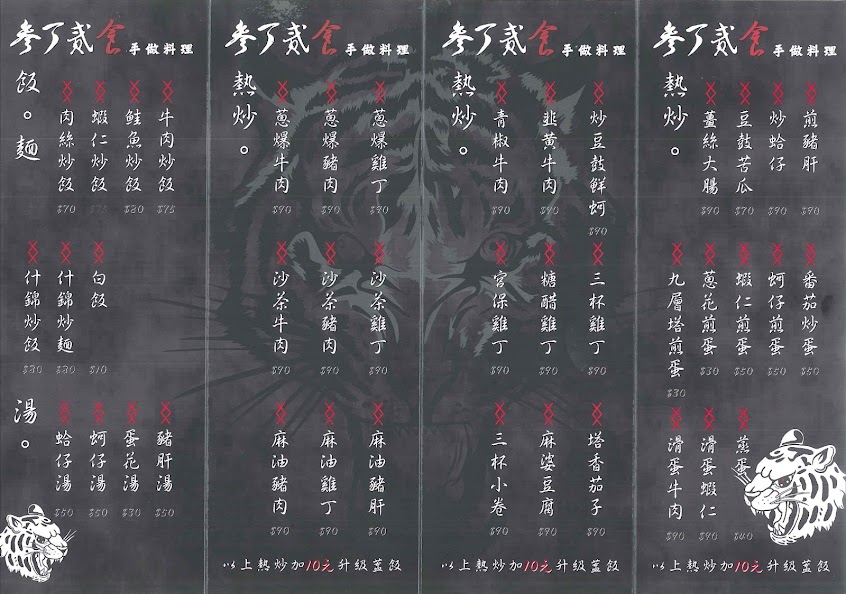 參了貳食 手做料理
飯。麵
牛肉炒飯 $75
鮭魚炒飯 $80
蝦仁炒飯 $75
肉絲炒飯 $70
白飯 $10
什錦炒麵 $80
什錦炒飯 $80
湯。
豬肝湯 $50
蛋花湯 $30
蚵仔湯 $50
蛤仔湯 $50
參了貳食 手做料理
熱炒。
蔥爆雞丁 $90
蔥爆豬肉 $90
蔥爆牛肉 $90
沙茶雞丁 $90
沙茶豬肉 $90
沙茶牛肉 $90
麻油豬肝 $90
麻油雞丁 $90
麻油豬肉 $90
以上熱炒加10元升級蓋飯
參了貳食 手做料理
熱炒。
炒豆鼓鮮蚵 $90
韭黃牛肉 $90
青椒牛肉 $90
三杯雞丁 $90
糖醋雞丁 $90
宮保雞丁 $90
塔香茄子 $90
麻婆豆腐 $90
三杯小卷 $90
以上熱炒加10元升級蓋飯
參了貳食 手做料理
熱炒。
煎豬肝 $90
炒蛤仔 $90
豆鼓苦瓜 $70
薑絲大腸 $90
番茄炒蛋 $50
蚵仔煎蛋 $50
蝦仁煎蛋 $50
蔥花煎蛋 $30
九層塔煎蛋 $30
蒸蛋 $40
滑蛋蝦仁 $90
滑蛋牛肉 $90
以上熱炒加10元升級蓋飯